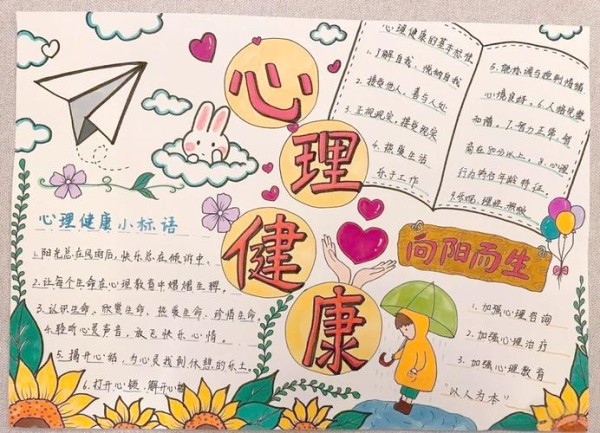 心理健康
心理健康的基本标准
1.了解自我、悦纳自我
2.接受他人,善与人处
3.正视现实,接受现实
4.热爱生活
乐于工作
5.能协调与控制情绪
心境良好。6.人格完整
和谐。7.智力正常,智
商在80分以上。8.心理
行为符合年龄特征。
心理健康小标语
1.阳光总在风雨后,快乐总在倾诉中、
2.让每个生命在心理教育中熠熠生辉。
3.认识生命、欣赏生命、热爱生命、珍惜生命
4.聆听心灵声音,放飞快乐心情。
5.揭开心结,为心灵找到休憩的乐土。
6.打开心锁,解开心结
向阳而生
1.加强心理咨询
2.加强心理治疗
3.加强心理教育
"以人为本"